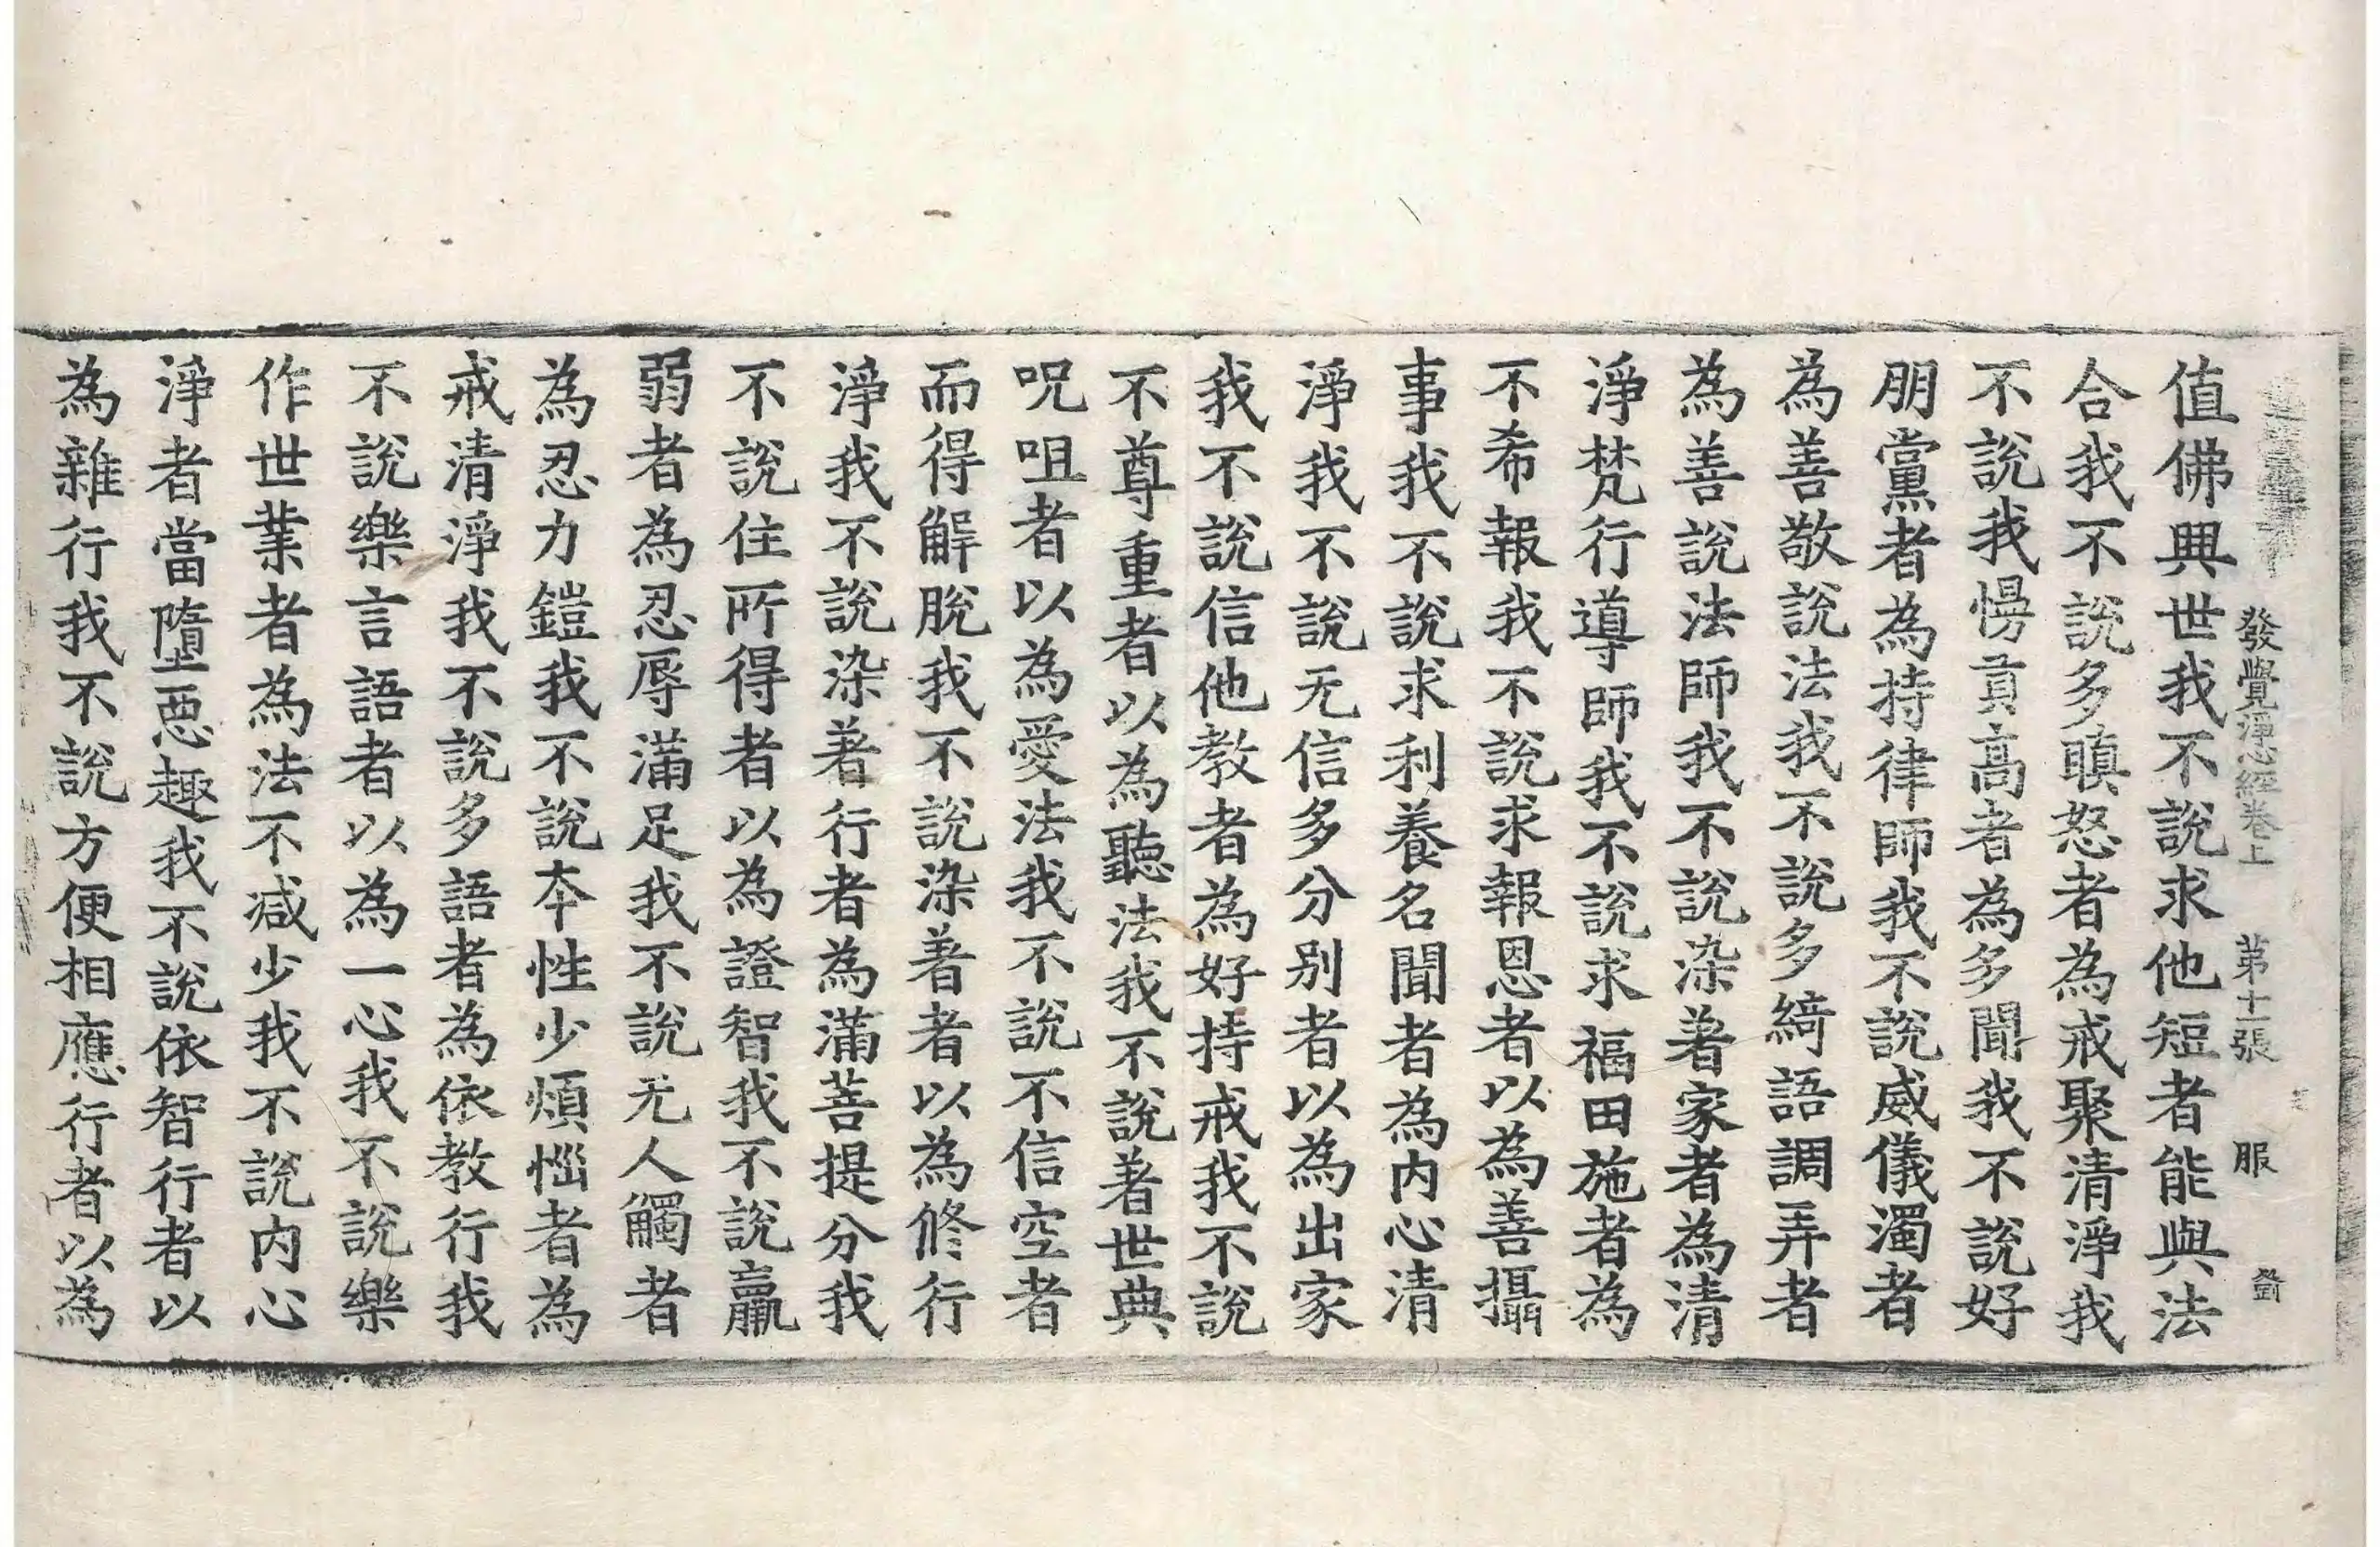 發覺淨心經卷上　第十一張　服
值佛興世我不說求他短者能與法
合我不說多瞋怒者為戒聚清淨我
不說我慢貢高者為多聞我不說好
朋黨者為持律師我不說威儀濁者
為善敬說法我不說多綺語調弄者
為善說法師我不說染著家者為清
淨梵行導師我不說求福田施者為
不希報我不說求報恩者以為善攝
事我不說求利養名聞者為内心清
淨我不說无信多分别者以為出家
我不說信他教者為好持戒我不說
不尊重者以為聽法我不說著世典
呪咀者以為愛法我不說不信空者
而得解脫我不說染著者以為修行
淨我不說染著行者為滿菩提分我
不說住所得者以為證智我不說羸
弱者為忍辱滿足我不說无人觸者
為忍力鎧我不說本性少煩惱者為
戒清淨我不說多語者為依教行我
不說樂言語者以為一心我不說樂
作世業者為法不減少我不說内心
淨者當墮惡趣我不說依智行者以
為雜行我不說方便相應行者以為